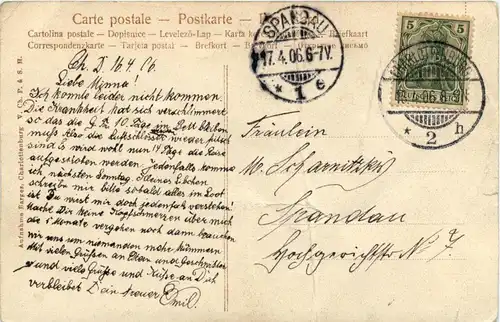 Carte postale – Postkarte –
Cartolina postale – Dopisnice – Levelező-Lap –
Correspondenzkarte – Tarjeta postal – Brefkort –
SPANDAU
17.4.06.6-7V.
* 1 e
5
CHARLOTTENBURG
* 2 h
Ch. d. 16.4.06.
Liebe Minna!
Ich konnte leider nicht kommen.
Die Krankheit hat sich verschlimmert
so das die G. 2. 10 Tage im Bett bleiben
muß. Also die Luftschlösser wieder
sind. Es wird wohl nun 14 Tage die Reise
aufgeschoben werden. Jedenfalls komme
ich nächsten Sonntag. Kleiner Liebchen
schreibe mir bitte sobald alles im Loot
ist. Du wirst mir doch jedenfalls verstehen!
Mache Dir keine Kopfschmerzen über mich
die 5 Monate vergehen noch dann brauchen
wir uns um niemanden mehr kümmern
Mit vielen Grüßen an Eltern und Geschwister
und viele Grüße und Küsse an Dich
verbleibet Dein treuer Emil.
Fräulein
M. Scharnitzki
Spandau
Hochgerichtstr. N. 7.
Aufnahme Barres, Charlottenburg V. Ch. P. & S. H.